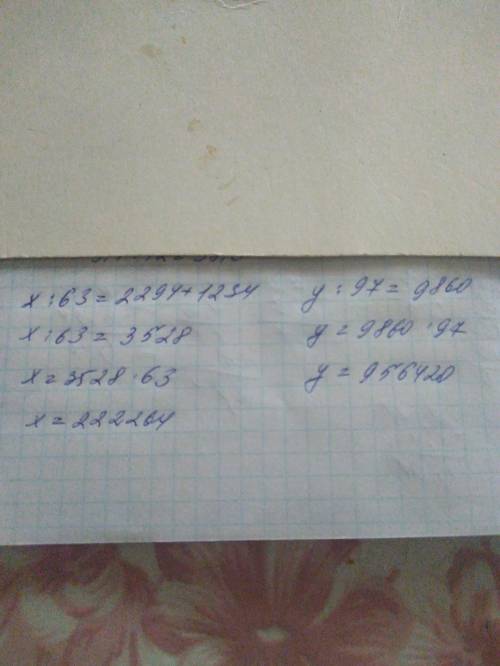 x : 63 = 2294 + 1234
x : 63 = 3528
x = 3528 · 63
x = 222264
y : 97 = 9860
y = 9860 · 97
y = 956420